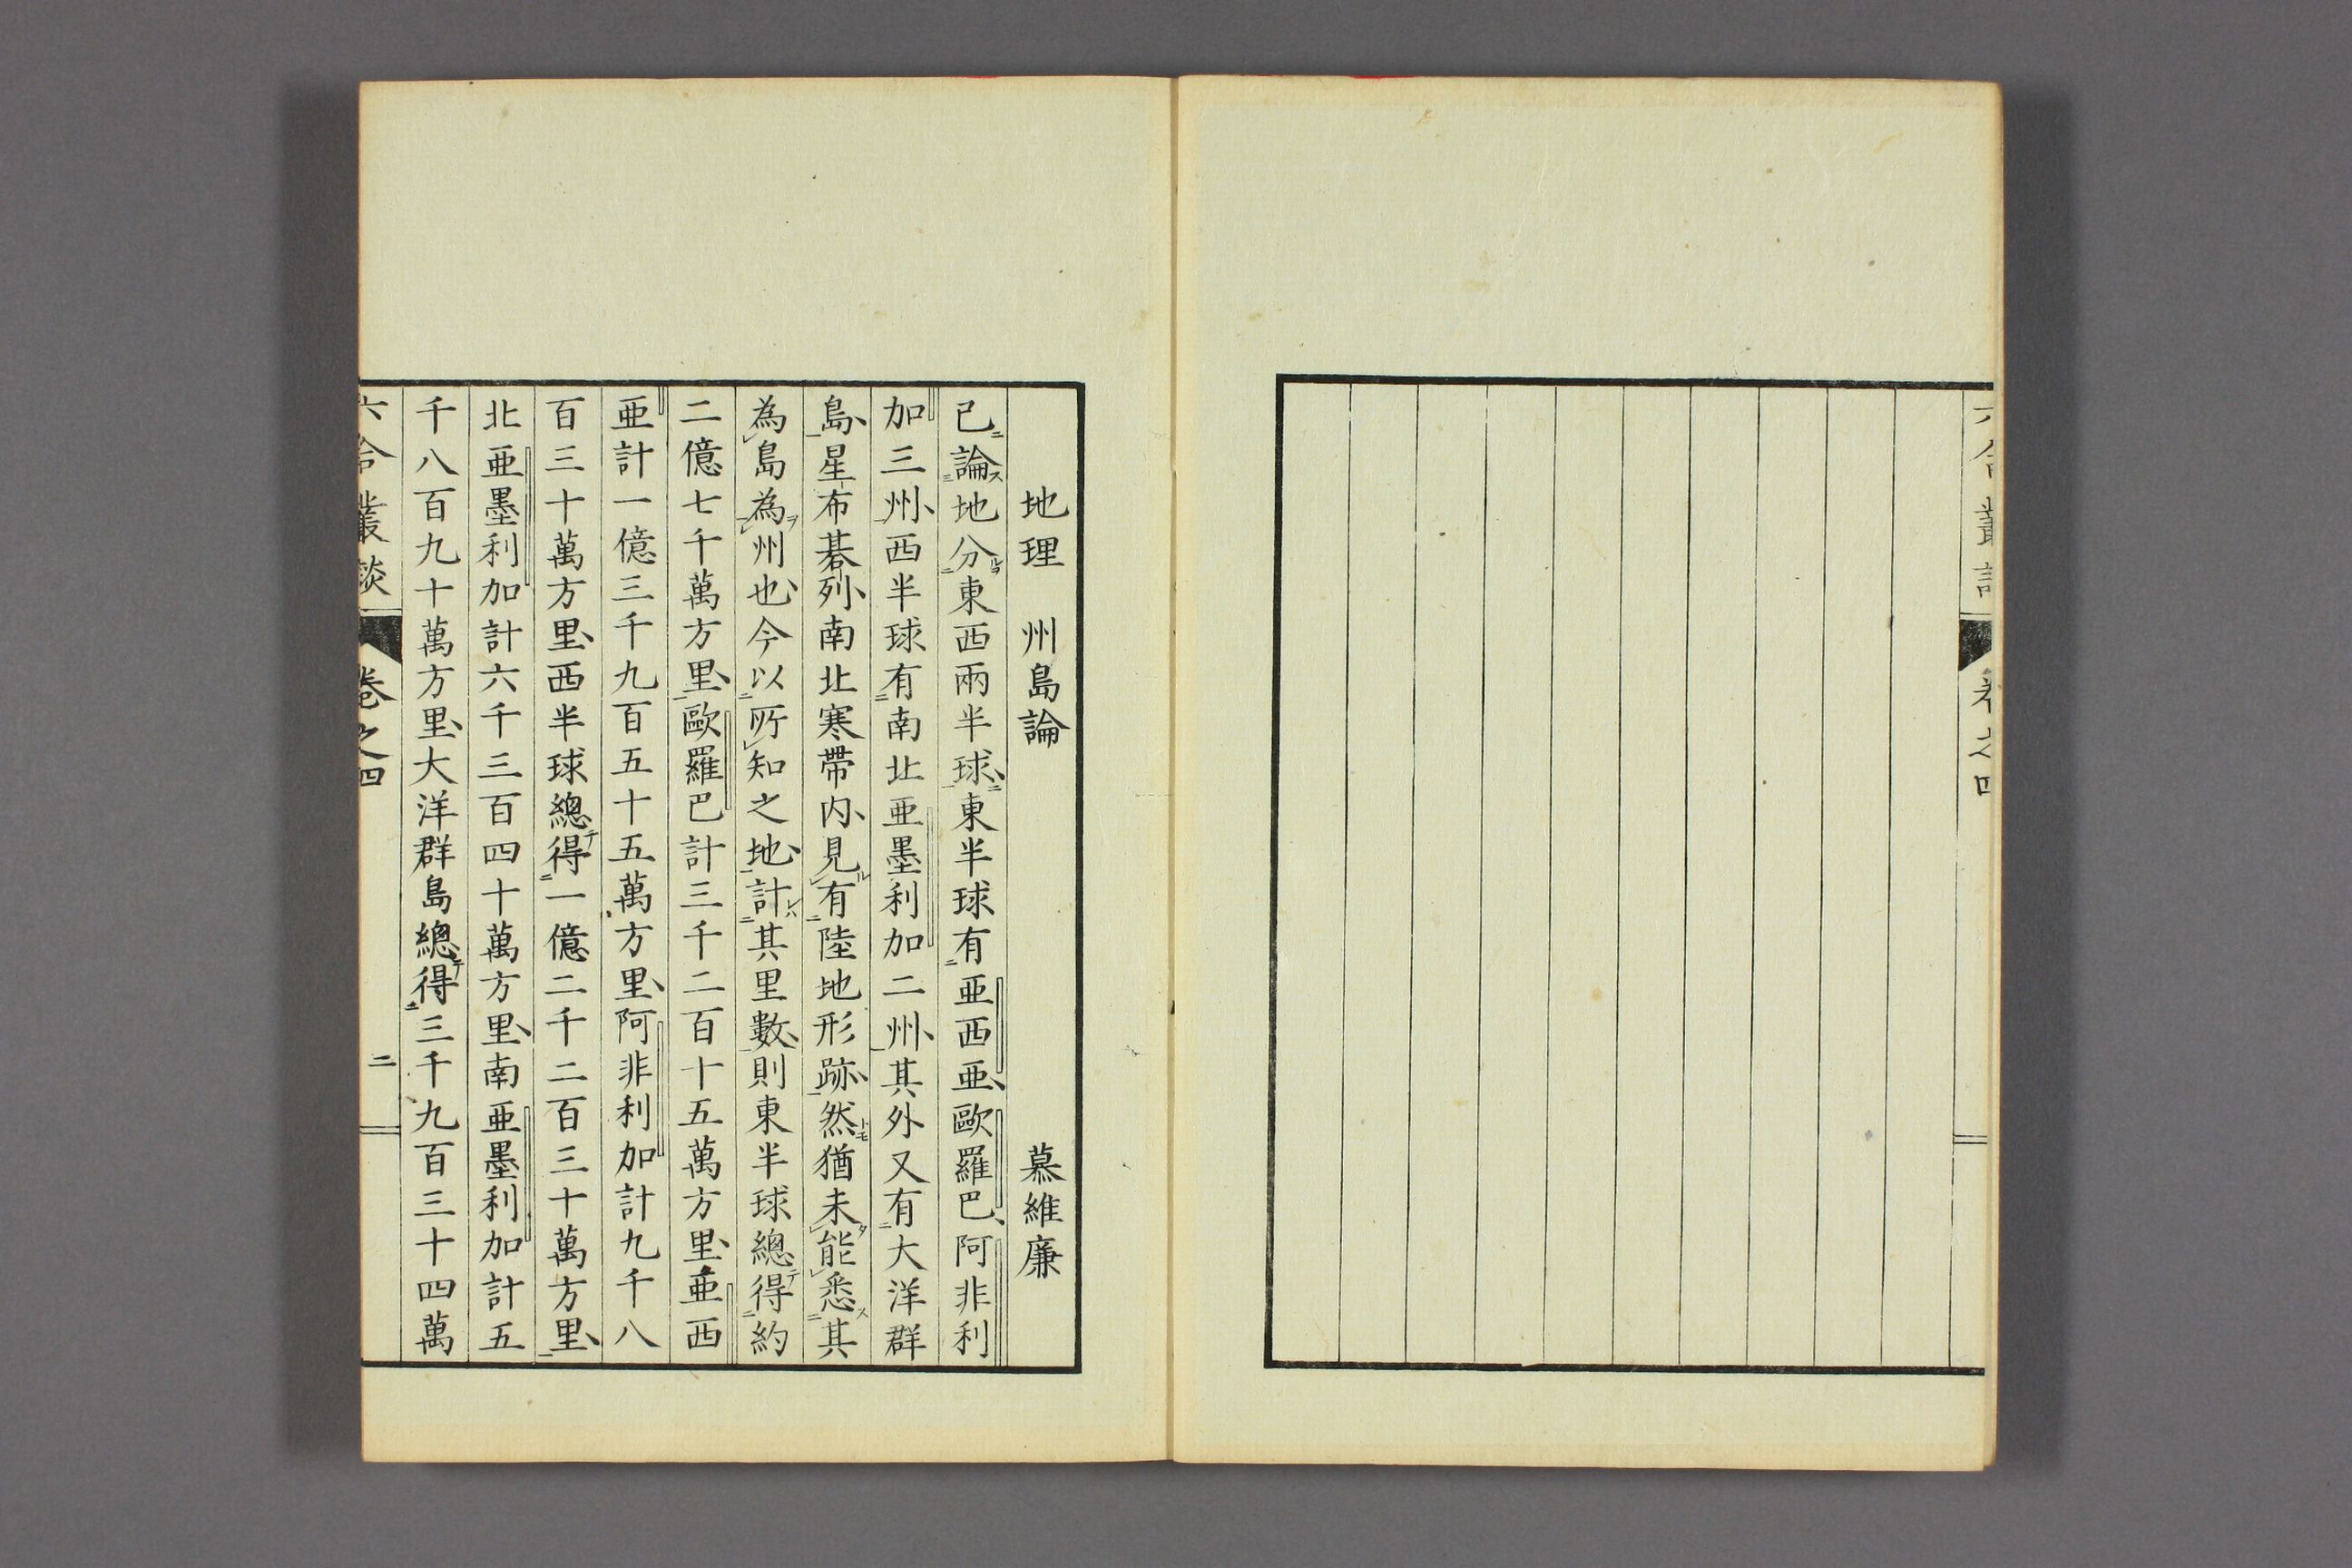 六合叢談 卷之四
地理 州島論 慕維廉
已論地分東西兩半球、東半球有亜西亜、歐羅巴、阿非利
加三州、西半球有南北亜墨利加二州、其外又有大洋群
島、星布碁列、南北寒帶内、見有陸地形跡、然猶未能悉其
為島為州也、今以所知之地、計其里數、則東半球總得約
二億七千萬方里、歐羅巴計三千二百十五萬方里、亜西
亜計一億三千九百五十五萬方里、阿非利加計九千八
百三十萬方里、西半球總得一億二千二百三十萬方里、
北亜墨利加計六千三百四十萬方里、南亜墨利加計五
千八百九十萬方里、大洋群島總得三千九百三十四萬
六合叢談 卷之四 二